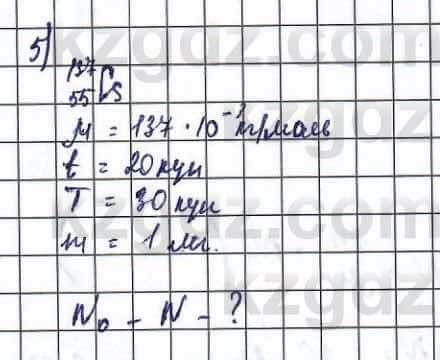 5)
¹³⁷₅₅Cs
M = 137 · 10⁻³ кг/моль
t = 20 күн
T = 30 күн
m = 1 мг.
N₀ - N - ?
kzgdz.com